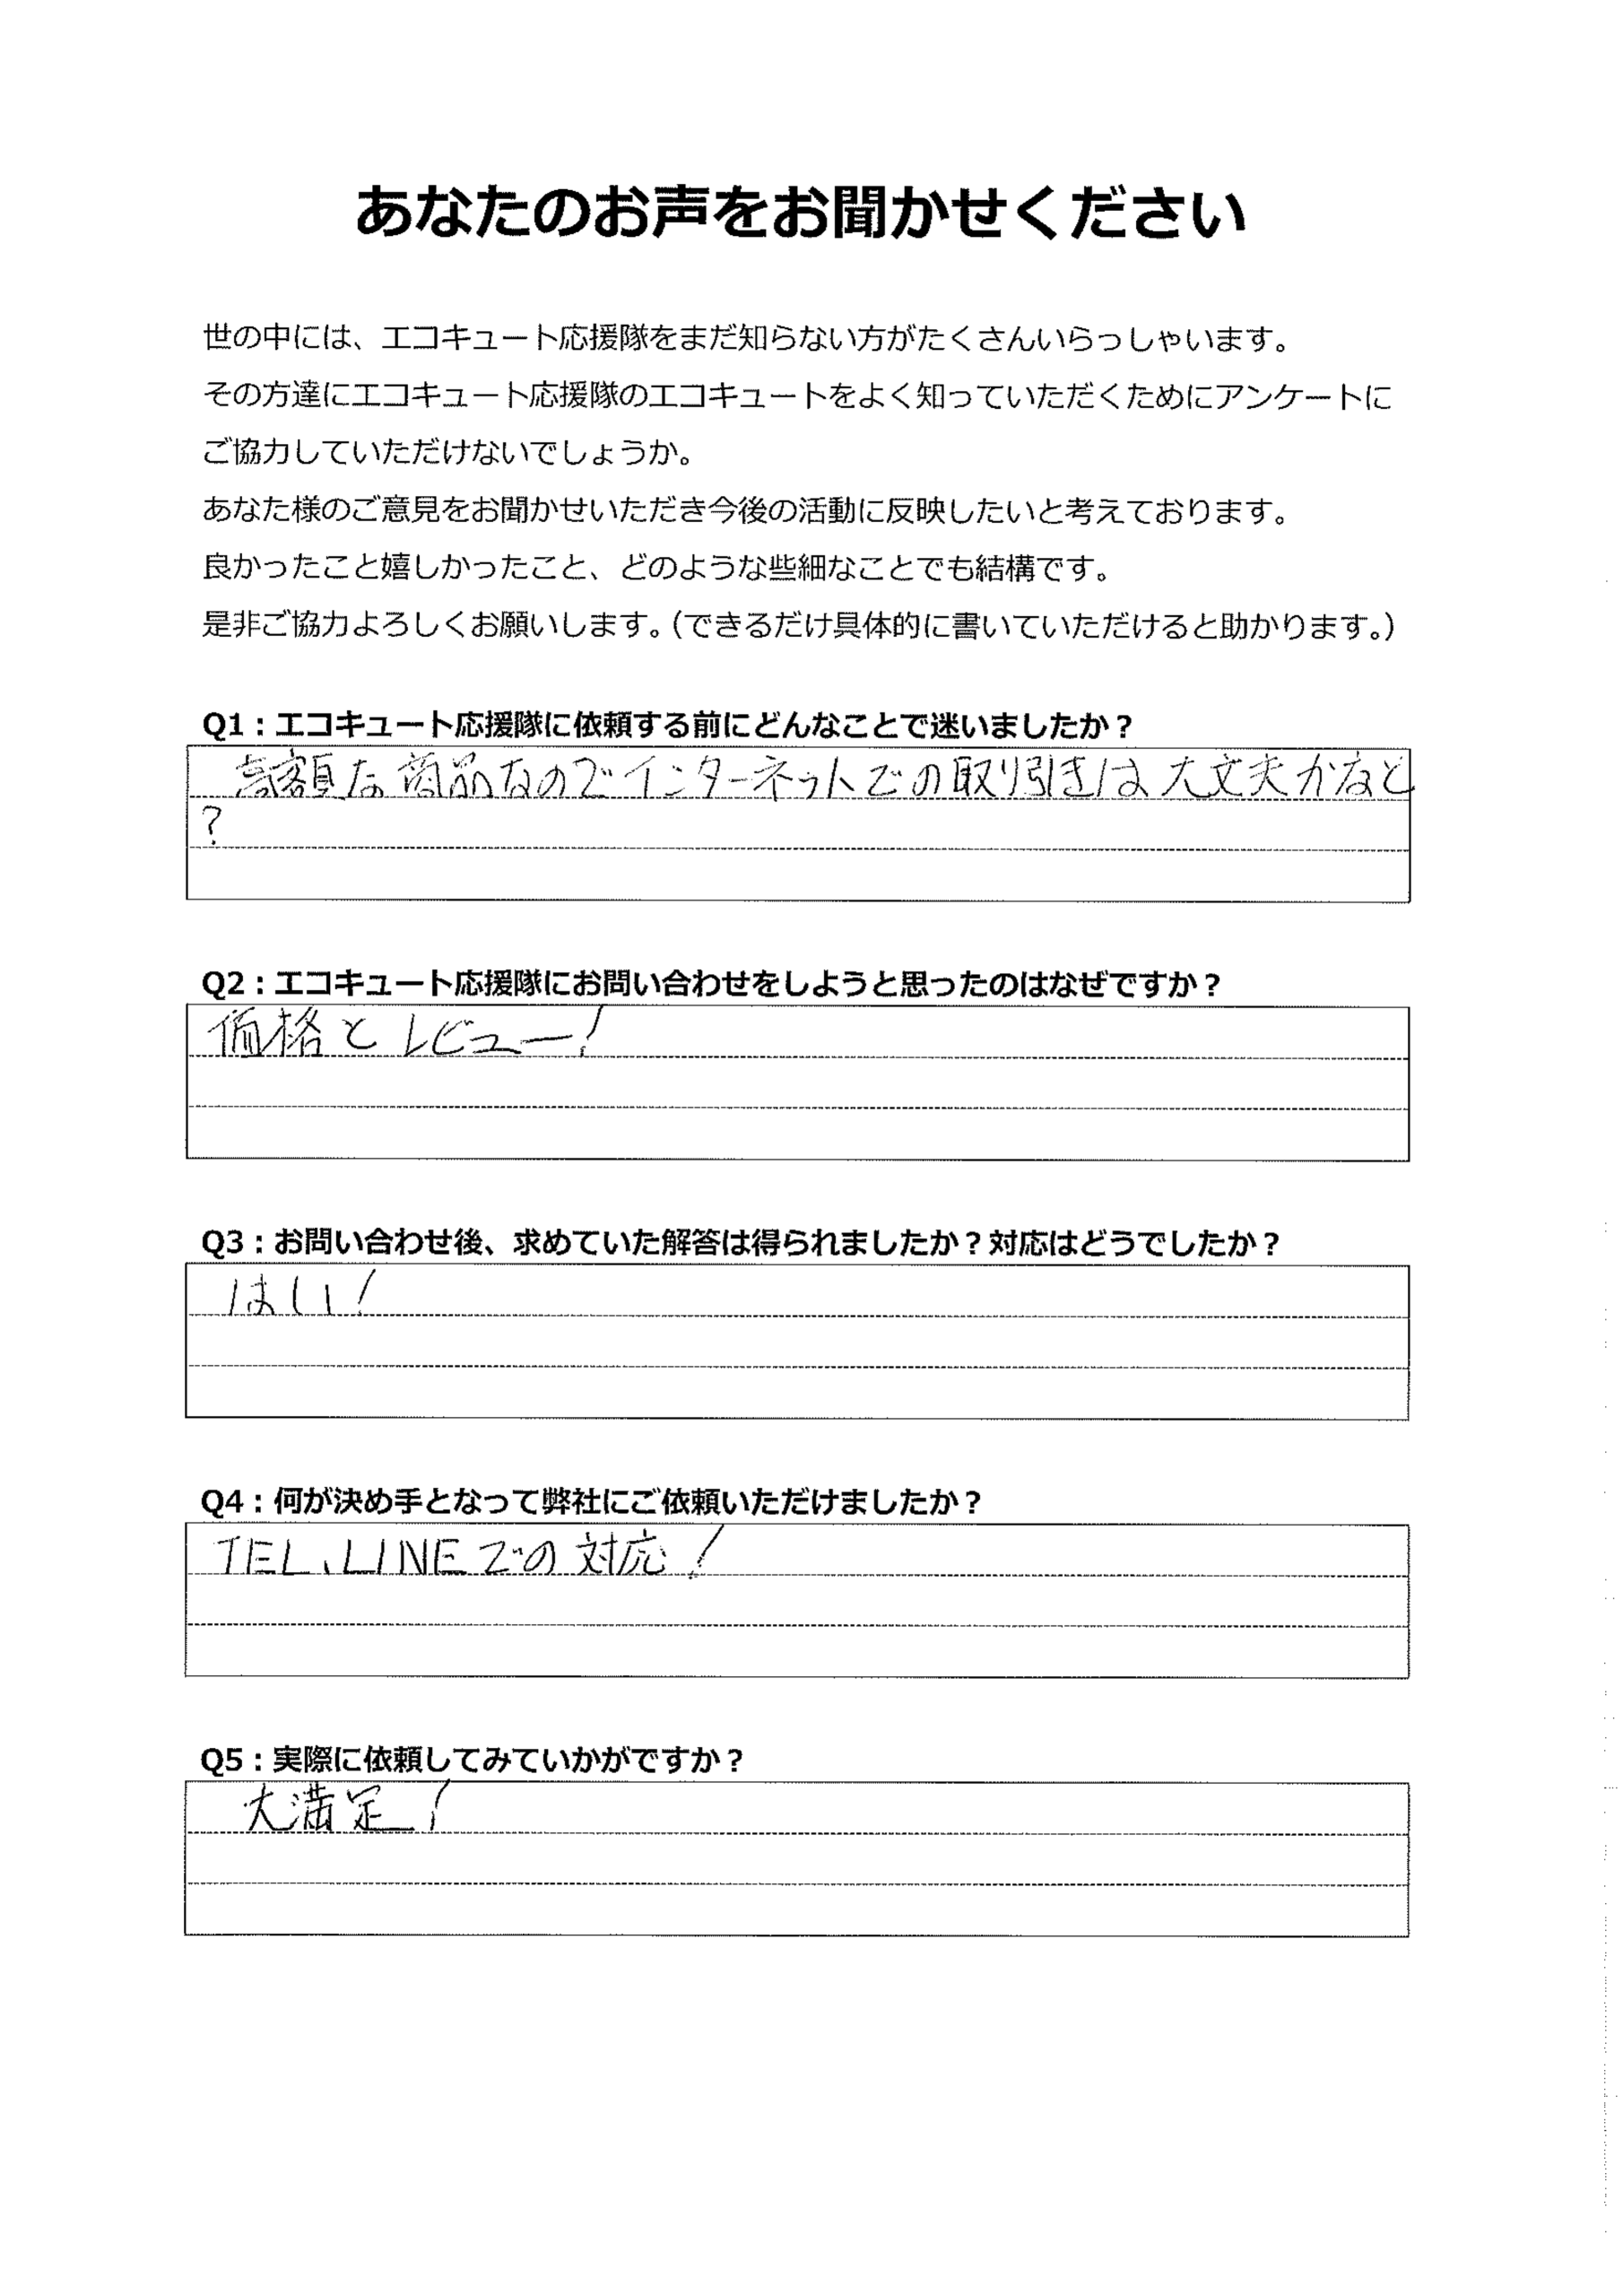 あなたのお声をお聞かせください
世の中には、エコキュート応援隊をまだ知らない方がたくさんいらっしゃいます。
その方達にエコキュート応援隊のエコキュートをよく知っていただくためにアンケートに
ご協力していただけないでしょうか。
あなた様のご意見をお聞かせいただき今後の活動に反映したいと考えております。
良かったこと嬉しかったこと、どのような些細なことでも結構です。
是非ご協力よろしくお願いします。（できるだけ具体的に書いていただけると助かります。）
Q1：エコキュート応援隊に依頼する前にどんなことで迷いましたか？
高額な商品なのでインターネットでの取り引きは大丈夫かなと
？
Q2：エコキュート応援隊にお問い合わせをしようと思ったのはなぜですか？
価格とレビュー！
Q3：お問い合わせ後、求めていた解答は得られましたか？対応はどうでしたか？
はい！
Q4：何が決め手となって弊社にご依頼いただけましたか？
TEL、LINEでの対応！
Q5：実際に依頼してみていかがですか？
大満足！